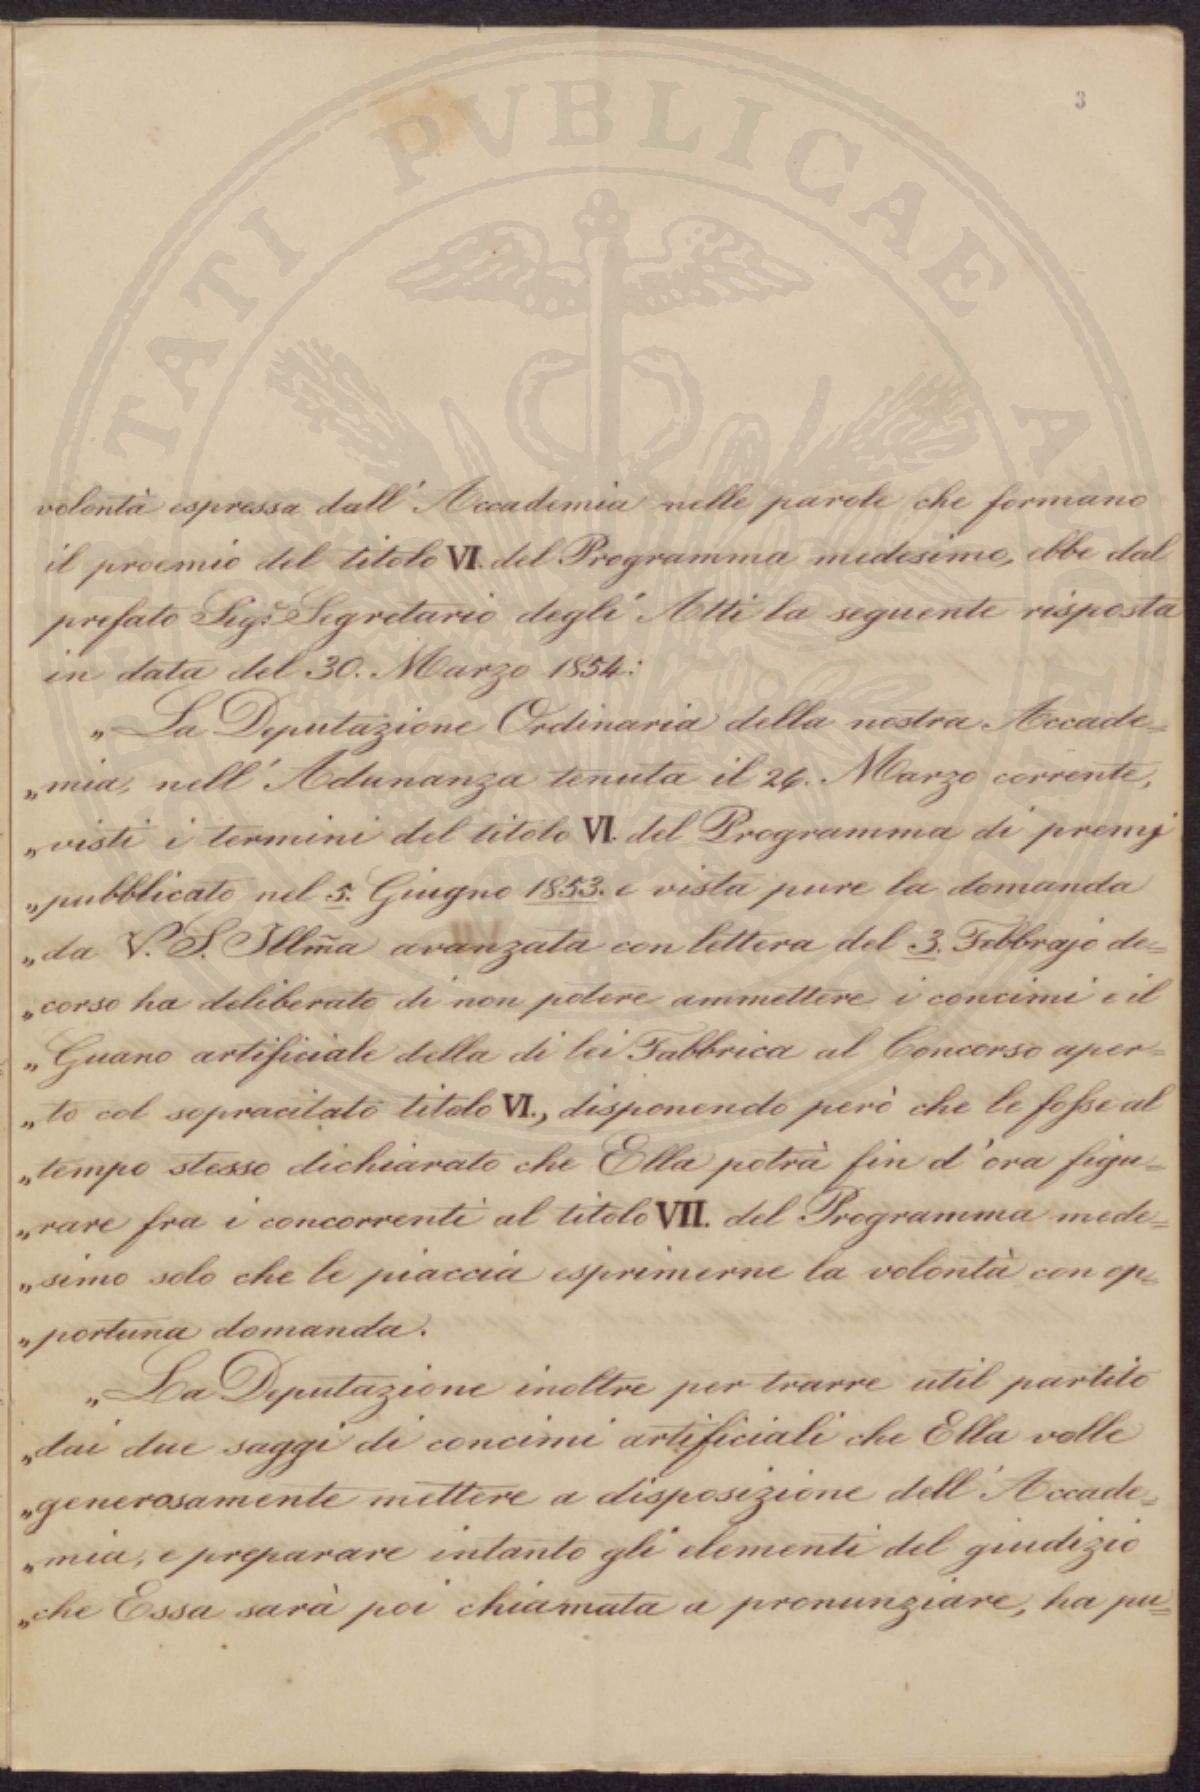 3
PVBLICAE
TATI
volontà espressa dall' Accademia nelle parole che formano
il proemio del titolo VI. del Programma medesimo, ebbe dal
prefato Sigr. Segretario degli Atti la seguente risposta
in data del 30. Marzo 1854:
„La Deputazione Ordinaria della nostra Accade=
„mia, nell' Adunanza tenuta il 26. Marzo corrente,
„visti i termini del titolo VI. del Programma di premj
„pubblicato nel 5. Giugno 1853. e vista pure la domanda
„da V. S. Illm̃a avanzata con lettera del 3. Febbrajo de=
„corso ha deliberato di non potere ammettere i concimi e il
„Guano artificiale della di lei Fabbrica al Concorso aper=
„to col sopracitato titolo VI., disponendo però che le fosse al
„tempo stesso dichiarato che Ella potrà fin d'ora figu=
„rare fra i concorrenti al titolo VII. del Programma mede=
„simo solo che le piaccia esprimerne la volontà con op=
„portuna domanda.
„La Deputazione inoltre per trarre util partito
„dai due saggi di concimi artificiali che Ella volle
„generosamente mettere a disposizione dell' Accade=
„mia, e preparare intanto gli elementi del giudizio
„che Essa sarà poi chiamata a pronunziare, ha pu=